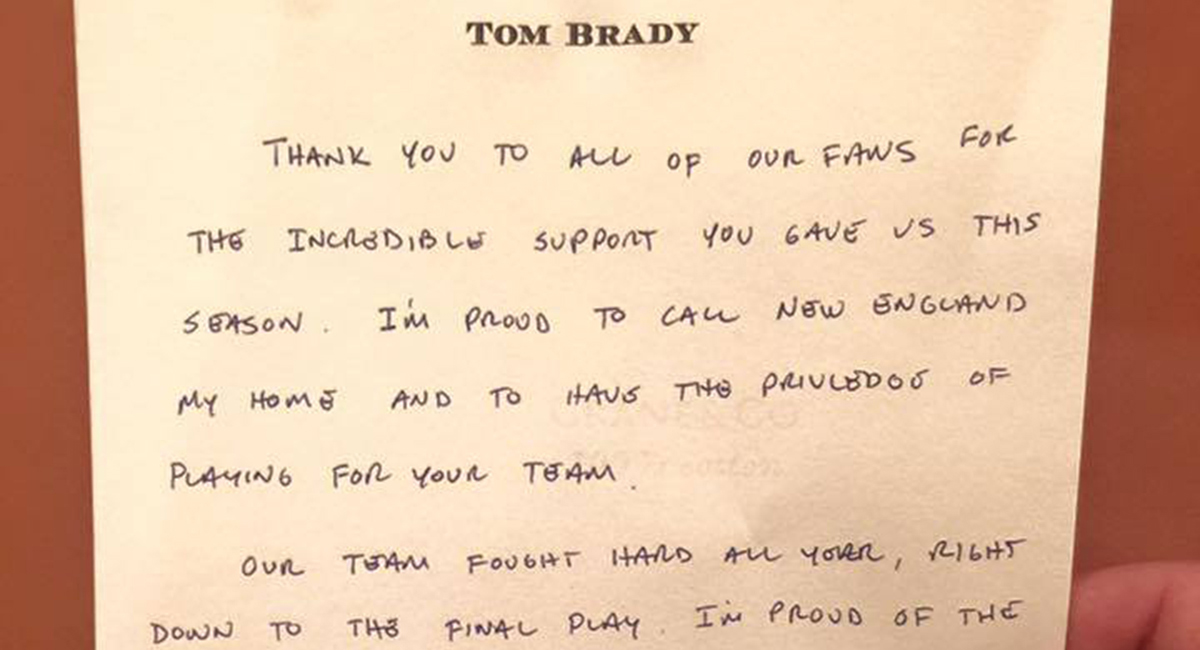 TOM BRADY
THANK YOU TO ALL OF OUR FANS FOR
THE INCREDIBLE SUPPORT YOU GAVE US THIS
SEASON. I'M PROUD TO CALL NEW ENGLAND
MY HOME AND TO HAVE THE PRIVLEDGE OF
CRANE & CO
100% cotton
PLAYING FOR YOUR TEAM.
OUR TEAM FOUGHT HARD ALL YEAR, RIGHT
DOWN TO THE FINAL PLAY. I'M PROUD OF THE